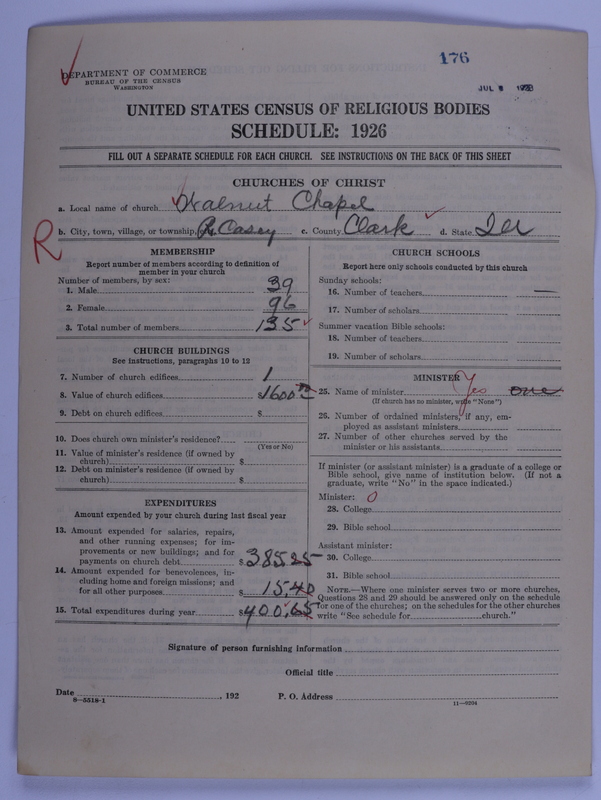 176
DEPARTMENT OF COMMERCE
BUREAU OF THE CENSUS
WASHINGTON
JUL
UNITED STATES CENSUS OF RELIGIOUS BODIES
SCHEDULE: 1926
FILL OUT A SEPARATE SCHEDULE FOR EACH CHURCH. SEE INSTRUCTIONS ON THE BACK OF THIS SHEET
CHURCHES OF CHRIST
a. Local name of church Walnut Chapel
b. City, town, village, or township, R. Casey c. County Clark d. State Ill
R
MEMBERSHIP
Report number of members according to definition of
member in your church
Number of members, by sex:
1. Male 39
2. Female 96
3. Total number of members 135
CHURCH BUILDINGS
See instructions, paragraphs 10 to 12
7. Number of church edifices 1
8. Value of church edifices $1600 00
9. Debt on church edifices $
10. Does church own minister's residence?
(Yes or No)
11. Value of minister's residence (if owned by
church) $
12. Debt on minister's residence (if owned by
church) $
EXPENDITURES
Amount expended by your church during last fiscal year
13. Amount expended for salaries, repairs,
and other running expenses; for im-
provements or new buildings; and for
payments on church debt $385.25
14. Amount expended for benevolences, in-
cluding home and foreign missions; and
for all other purposes $15.40
15. Total expenditures during year $400.65
CHURCH SCHOOLS
Report here only schools conducted by this church
Sunday schools:
16. Number of teachers —
17. Number of scholars
Summer vacation Bible schools:
18. Number of teachers
19. Number of scholars
MINISTER
25. Name of minister Yes one
(If church has no minister, write "None")
26. Number of ordained ministers, if any, em-
ployed as assistant ministers
27. Number of other churches served by the
minister or his assistants
If minister (or assistant minister) is a graduate of a college or
Bible school, give name of institution below. (If not a
graduate, write "No" in the space indicated.)
Minister: 0
28. College
29. Bible school
Assistant minister:
30. College
31. Bible school
NOTE.—Where one minister serves two or more churches,
Questions 28 and 29 should be answered only on the schedule
for one of the churches; on the schedules for the other churches
write "See schedule for church."
Signature of person furnishing information
Official title
Date , 192 P. O. Address
8—5518-1 11—9204